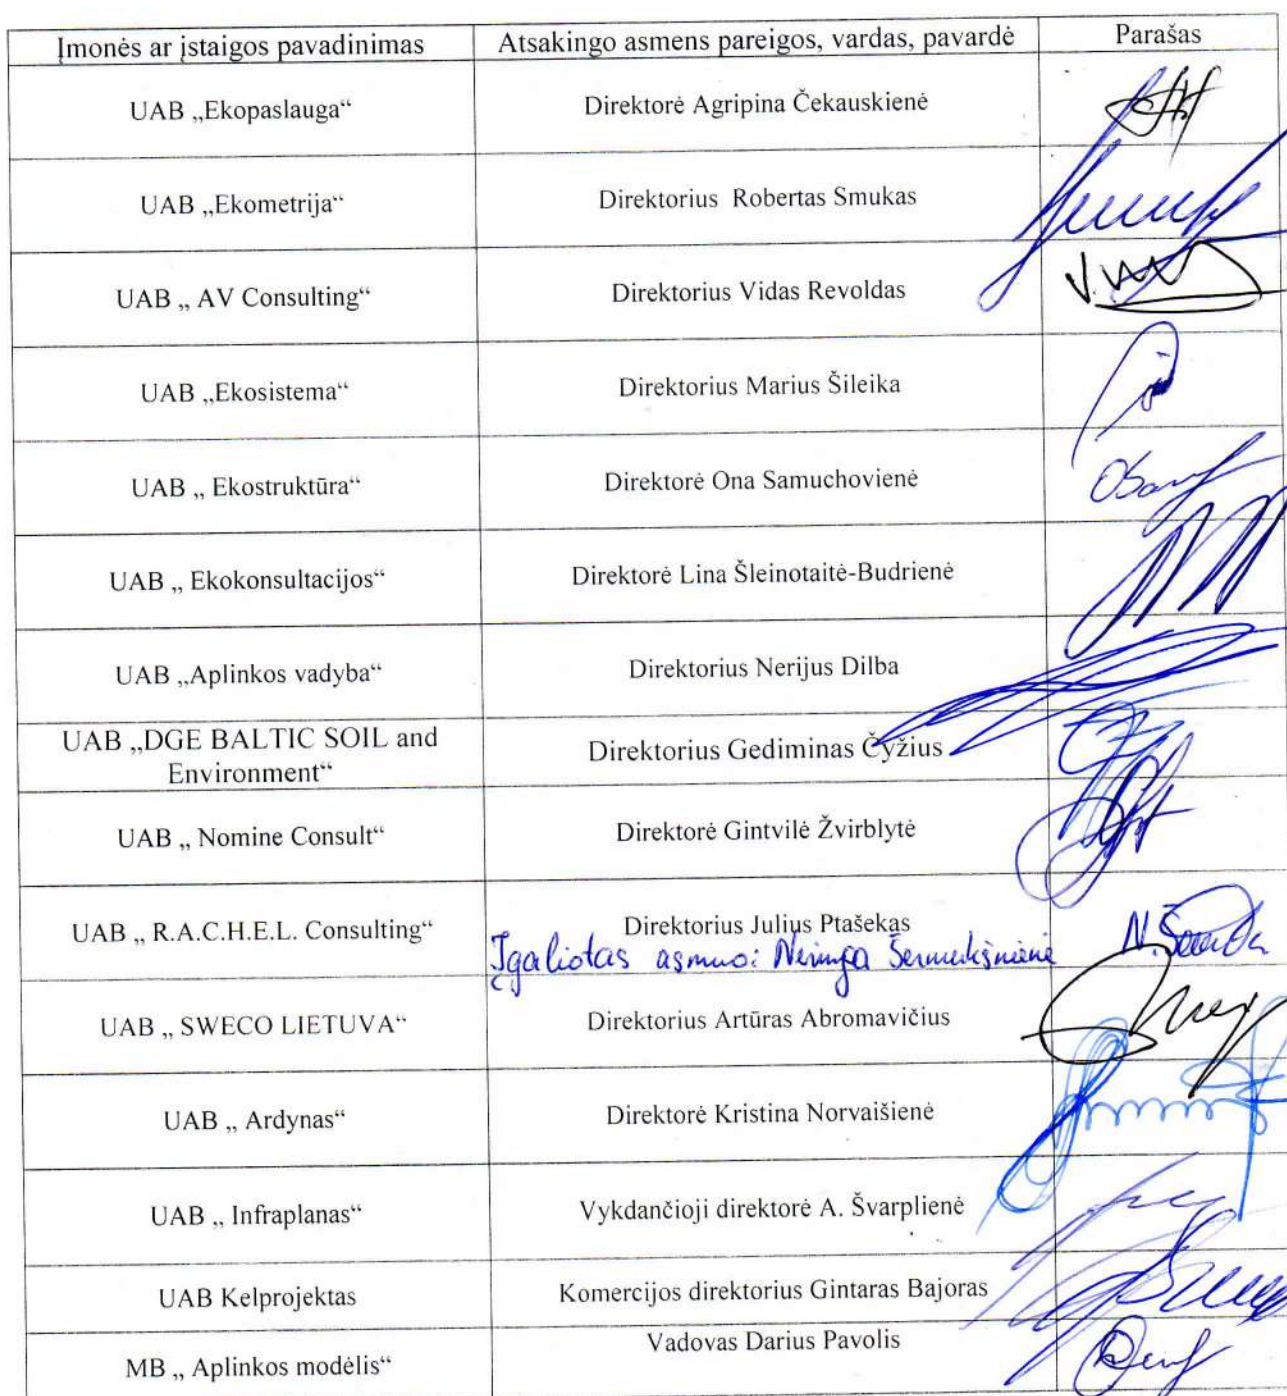 Įmonės ar įstaigos pavadinimas Atsakingo asmens pareigos, vardas, pavardė Parašas
UAB „Ekopaslauga“ Direktorė Agripina Čekauskienė
UAB „Ekometrija“ Direktorius Robertas Smukas
UAB „ AV Consulting“ Direktorius Vidas Revoldas
UAB „Ekosistema“ Direktorius Marius Šileika
UAB „ Ekostruktūra“ Direktorė Ona Samuchovienė
UAB „ Ekokonsultacijos“ Direktorė Lina Šleinotaitė-Budrienė
UAB „Aplinkos vadyba“ Direktorius Nerijus Dilba
UAB „DGE BALTIC SOIL and
Environment“ Direktorius Gediminas Čyžius
UAB „ Nomine Consult“ Direktorė Gintvilė Žvirblytė
UAB „ R.A.C.H.E.L. Consulting“ Direktorius Julius Ptašekas
Įgaliotas asmuo: Neringa
UAB „ SWECO LIETUVA“ Direktorius Artūras Abromavičius
UAB „ Ardynas“ Direktorė Kristina Norvaišienė
UAB „ Infraplanas“ Vykdančioji direktorė A. Švarplienė
UAB Kelprojektas Komercijos direktorius Gintaras Bajoras
MB „ Aplinkos modėlis“ Vadovas Darius Pavolis